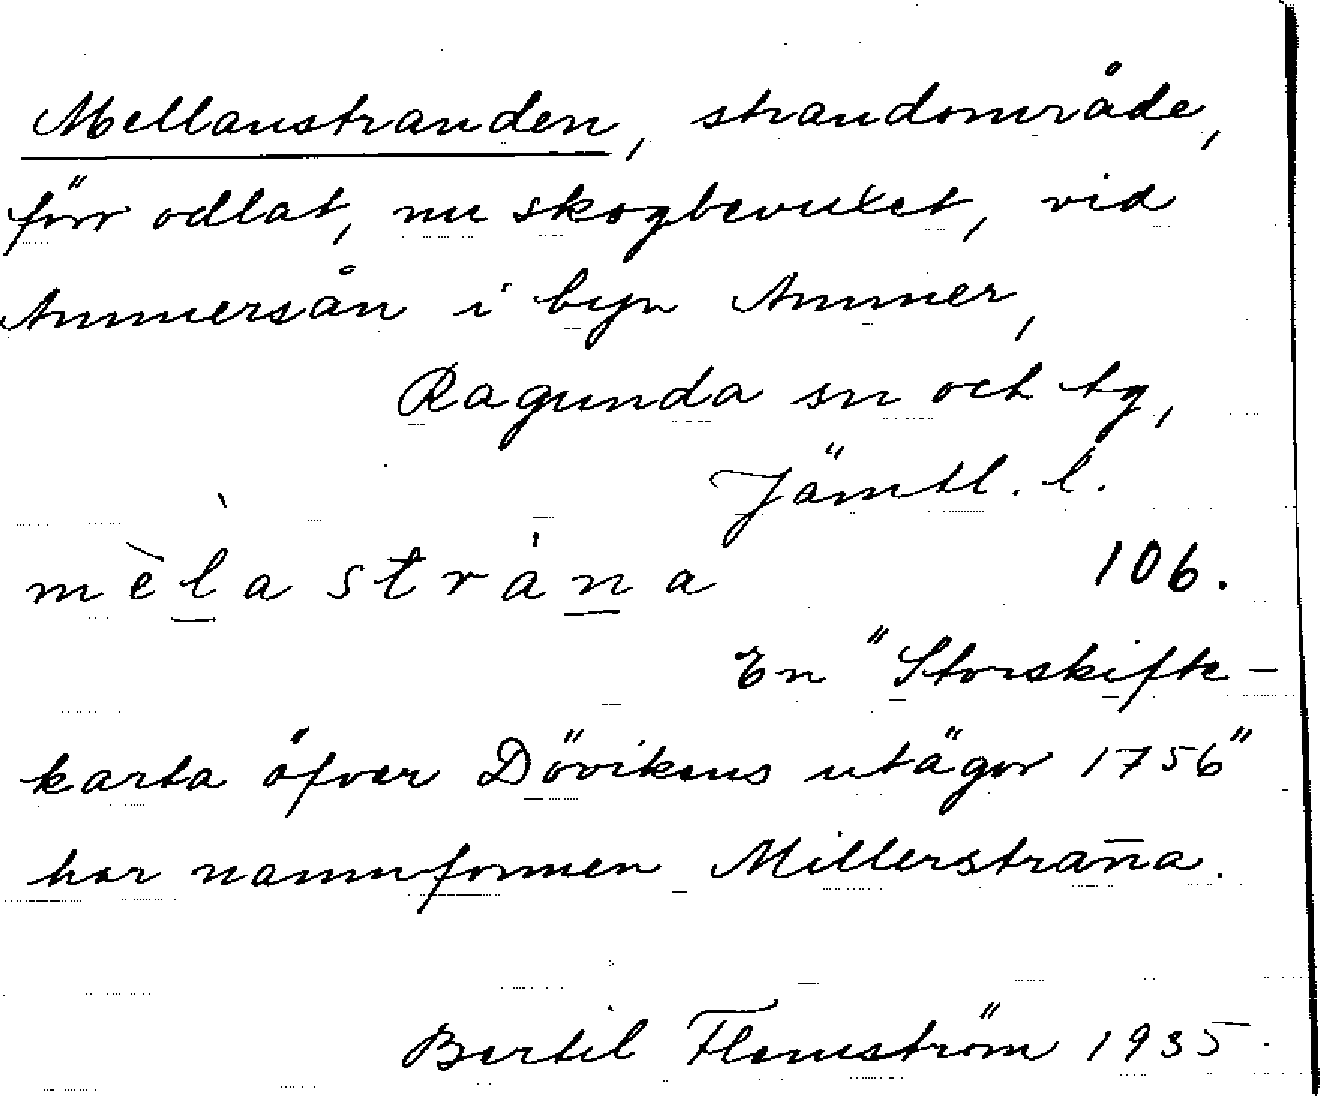 Mellanstranden, strandområde,
förr odlat, nu skogbevuxet, vid
Ammersån i byn Ammer,
Ragunda sn och tg,
Jämtl. l.
mèlastràna 106.
En "Storskifte-
karta öfver Dövikens utägor 1756"
har namnformen Millerstran̄a.
Bertil Flemström 1935.